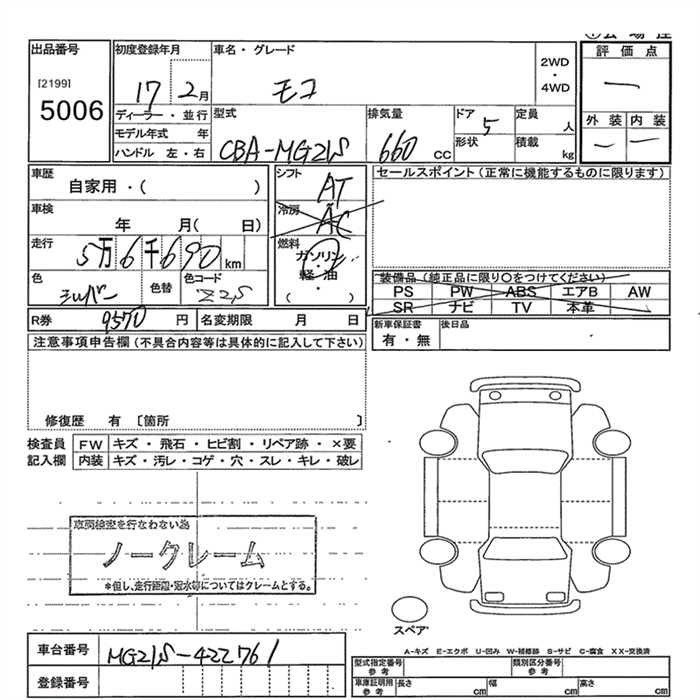 出品番号
[2199]
5006
初度登録年月
17 2月
ディーラー・並行
モデル年式 年
ハンドル 左・右
車名・グレード
モコ
2WD
・
4WD
型式
CBA-MG21S
排気量
660 cc
ドア 5
形状
定員 人
積載 kg
評価点
—
外装 内装
— —
車歴
自家用・( )
車検
年 月( 日)
走行
5万6千690km
色
シルバー
色替
色コード
Z2S
シフト
AT
冷房
AC
燃料
ガソリン
・
軽・油
( )
セールスポイント(正常に機能するものに限ります)
装備品(純正品に限り○をつけてください)
PS PW ABS エアB AW
SR ナビ TV 本革
R券 9570円 名変期限 月 日
新車保証書
有・無
後日品
注意事項申告欄(不具合内容等は具体的に記入して下さい)
修復歴 有 [箇所 ]
検査員
記入欄
FW キズ・飛石・ヒビ割・リペア跡・×要
内装 キズ・汚レ・コゲ・穴・スレ・キレ・破レ
車両検査を行なわない為
ノークレーム
*但し、走行距離・冠水等についてはクレームとする。
スペア
A-キズ E-エクボ U-凹み W-補修跡 S-サビ C-腐食 XX-交換済
車台番号 MG21S-422761
登録番号
型式指定番号
参考
類別区分番号
参考
車庫証明用
参考
長さ cm 幅 cm 高さ cm